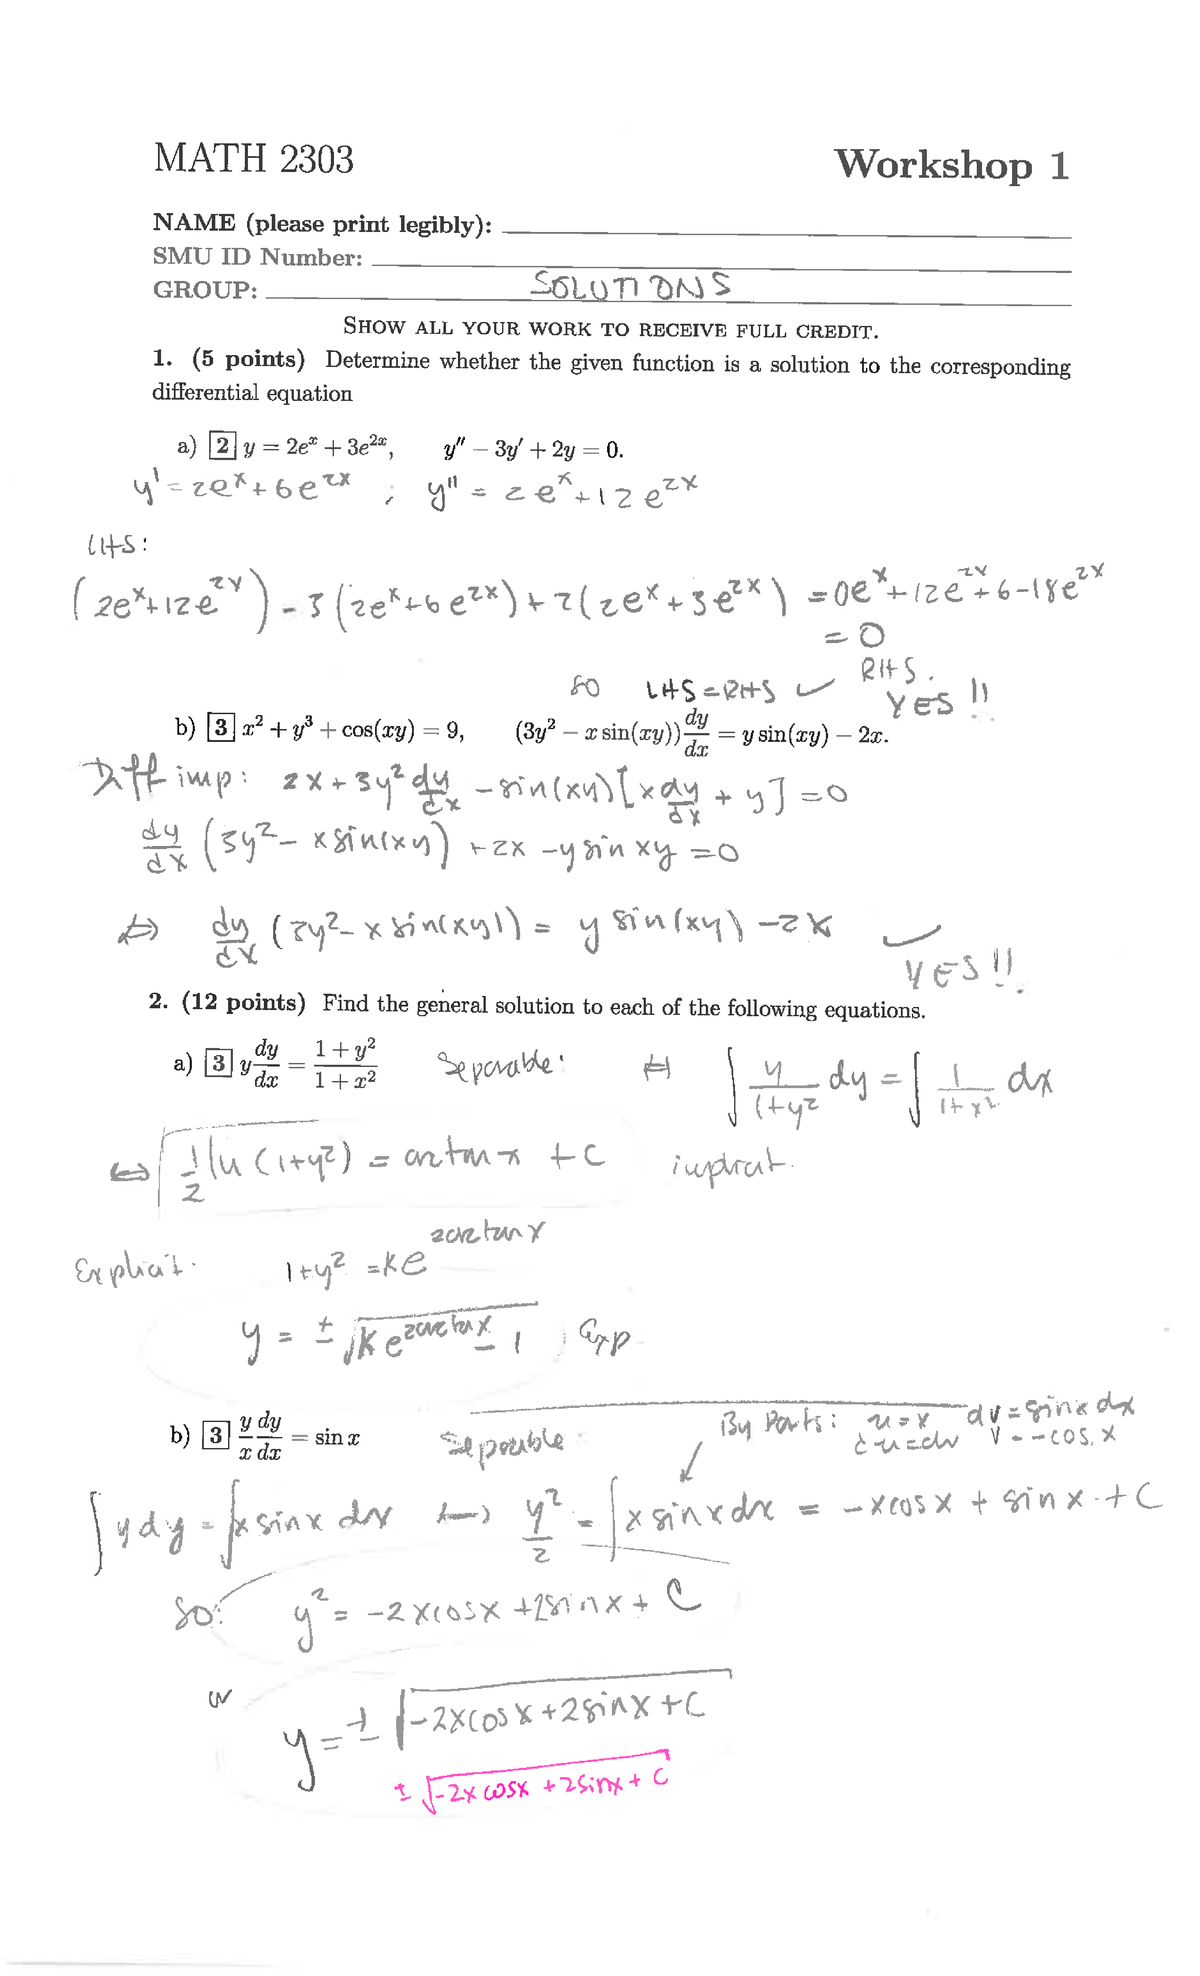 MATH 2303 Workshop 1
NAME (please print legibly):
SMU ID Number:
GROUP: SOLUTIONS
SHOW ALL YOUR WORK TO RECEIVE FULL CREDIT.
1. (5 points) Determine whether the given function is a solution to the corresponding
differential equation
a) [2] y = 2eˣ + 3e²ˣ, y″ − 3y′ + 2y = 0.
y' = 2eˣ + 6e²ˣ ; y" = 2eˣ + 12e²ˣ
LHS:
(2eˣ + 12e²ˣ) − 3(2eˣ + 6e²ˣ) + 2(2eˣ + 3e²ˣ) = 0eˣ + 12e²ˣ + 6 − 18e²ˣ
= 0
RHS.
so LHS = RHS ✓ YES !!
b) [3] x² + y³ + cos(xy) = 9, (3y² − x sin(xy)) dy/dx = y sin(xy) − 2x.
Diff imp: 2x + 3y² dy/dx − sin(xy)[x dy/dx + y] = 0
dy/dx (3y² − x sin(xy)) + 2x − y sin xy = 0
⇔ dy/dx (3y² − x sin(xy)) = y sin(xy) − 2x ✓
YES !!
2. (12 points) Find the general solution to each of the following equations.
a) [3] y dy/dx = (1 + y²)/(1 + x²) Separable: ⇔ ∫ y/(1+y²) dy = ∫ 1/(1+x²) dx
⇔ 1/2 ln(1+y²) = arctan x + C implicit.
Explicit. 1+y² = Ke^(2arctan x)
y = ± √(Ke^(2arctan x) − 1) , Exp
b) [3] y/x dy/dx = sin x Separable: By Parts: u = x dv = sinx dx
du = dx v = −cos x
∫ y dy = ∫ x sinx dx ⟷ y²/2 = ∫ x sinx dx = −xcos x + sin x + C
So: y² = −2xcosx + 2sinx + C
or
y = ± √(−2xcosx + 2sinx + C)
± √(−2x cosx + 2sinx + C)